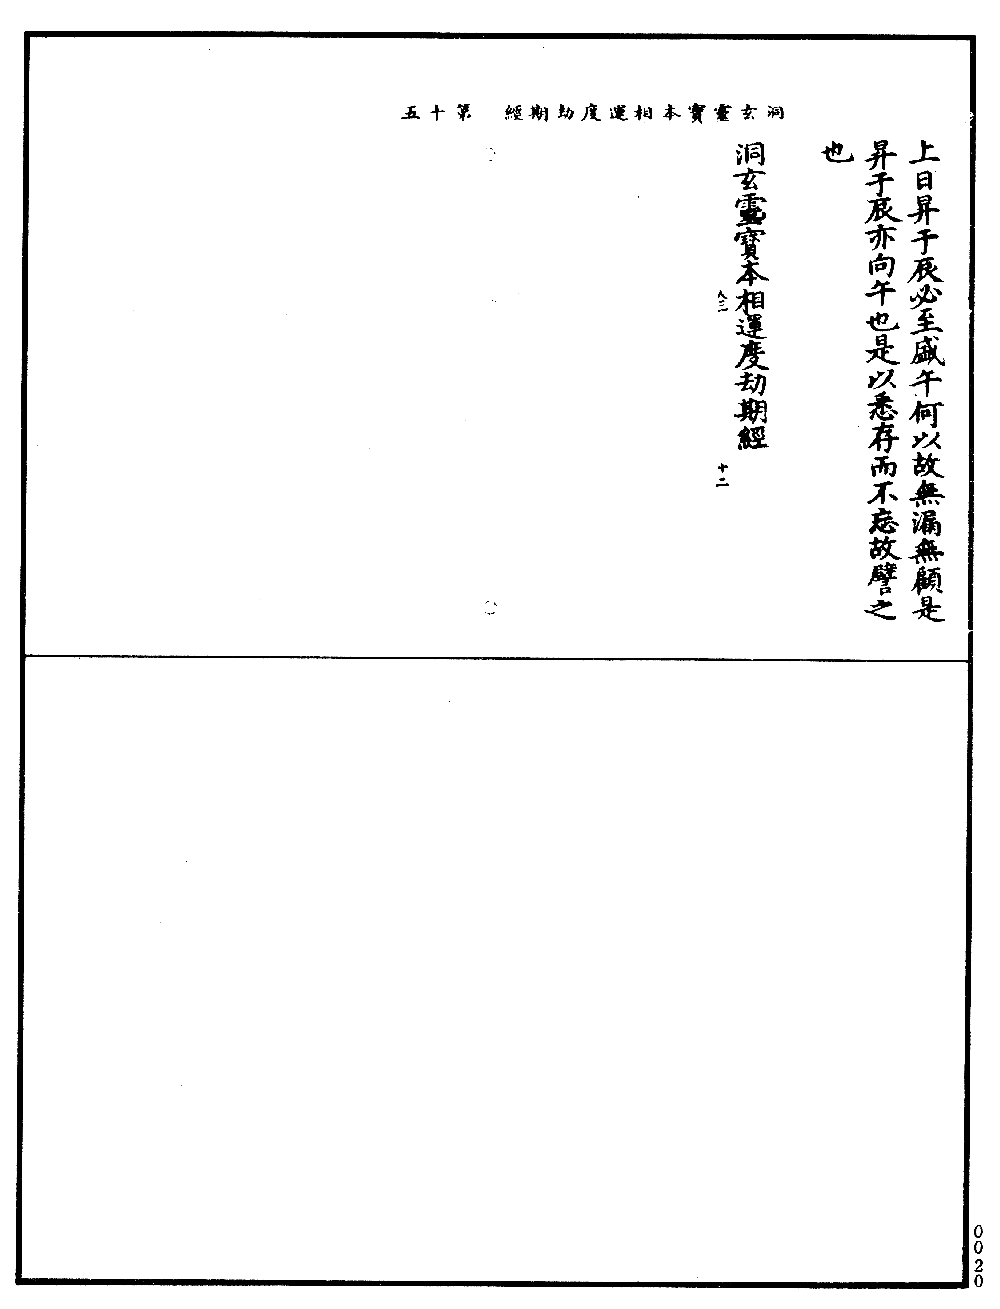 洞玄靈寶本相運度劫期經　第十五
上日昇于辰必至盛午何以故無漏無顧是
昇于辰亦向午也是以悉存而不忘故譬之
也
洞玄靈寶本相運度劫期經
人三
十二
0020